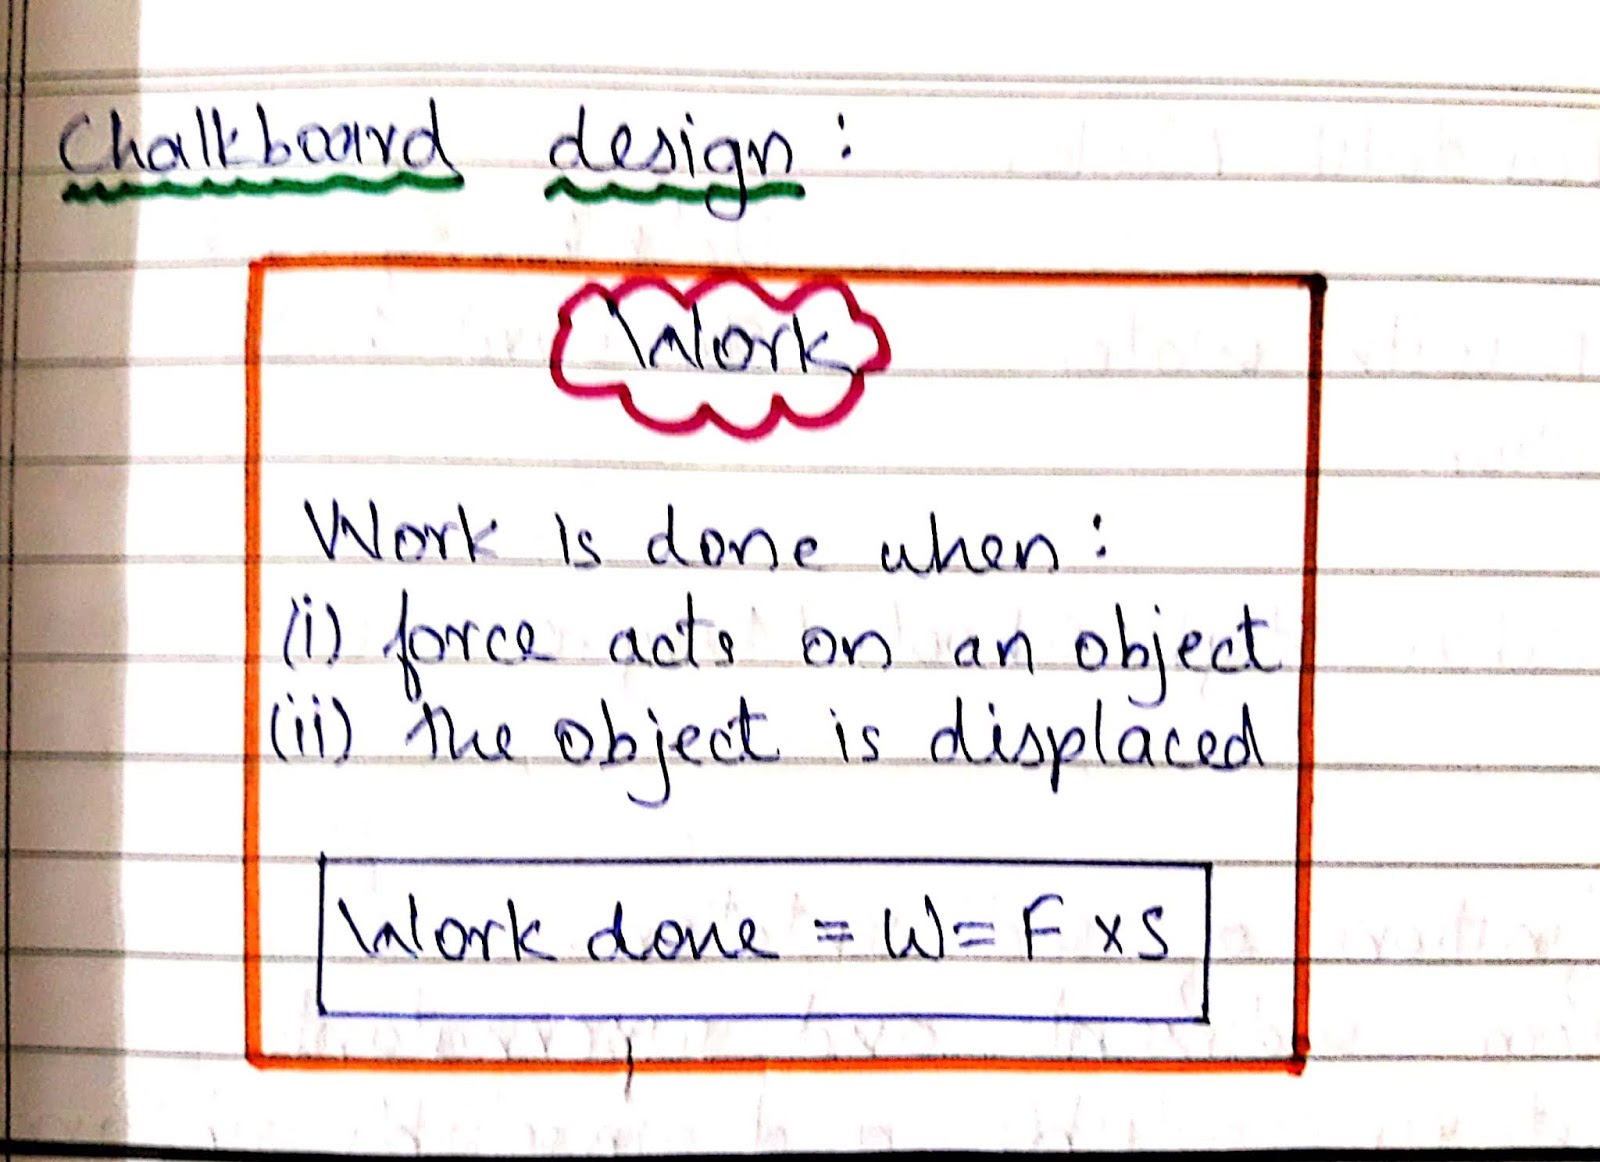 Chalkboard design :
Work
Work is done when :
(i) force acts on an object
(ii) the object is displaced
Work done = W = F x S